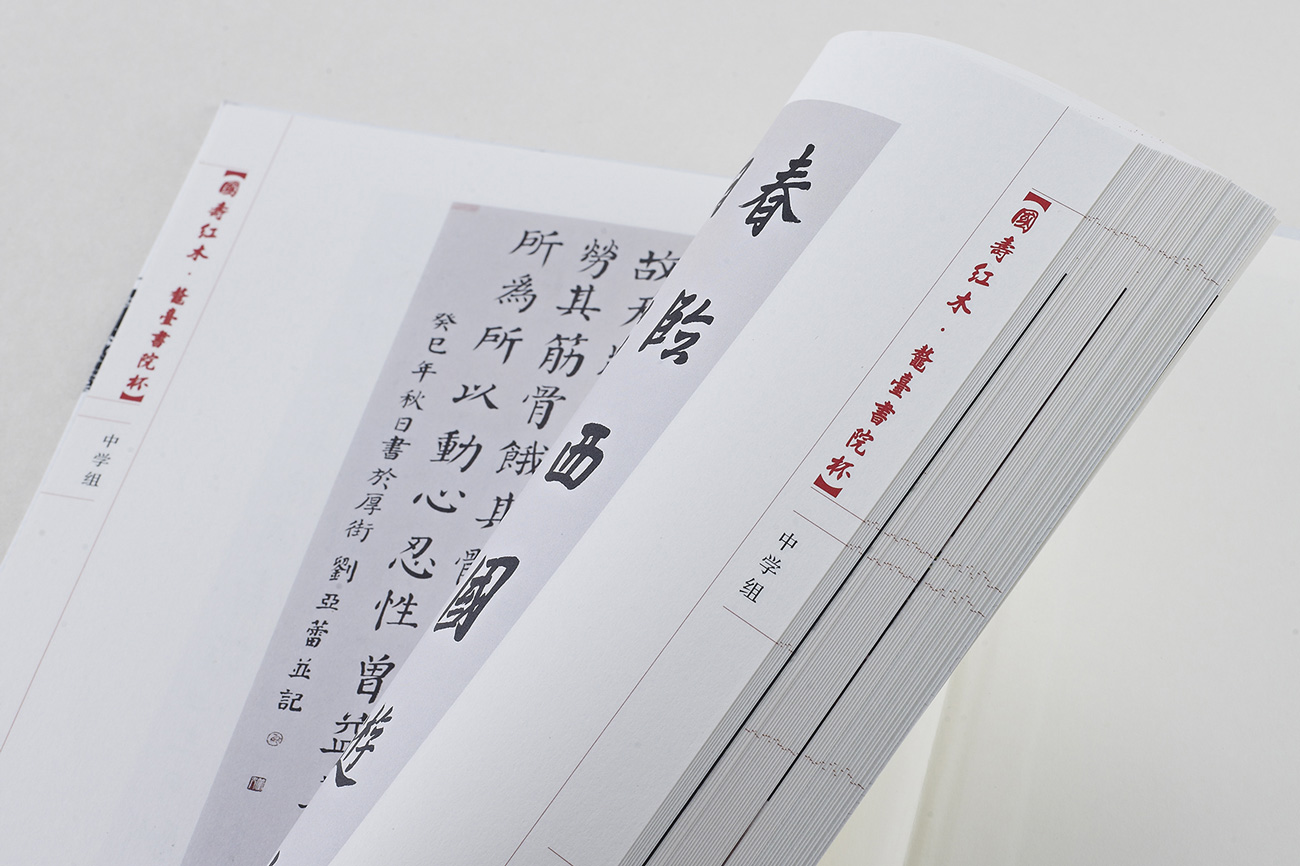 【國寿红木·鳌臺書院杯】
中学组
故
勞其筋骨餓其
所為所以動心忍性曾益
癸巳年秋日書於厚街劉亞蕾並記
春
陰
西
國
遊
【國壽红木·鳌臺書院杯】
中学组